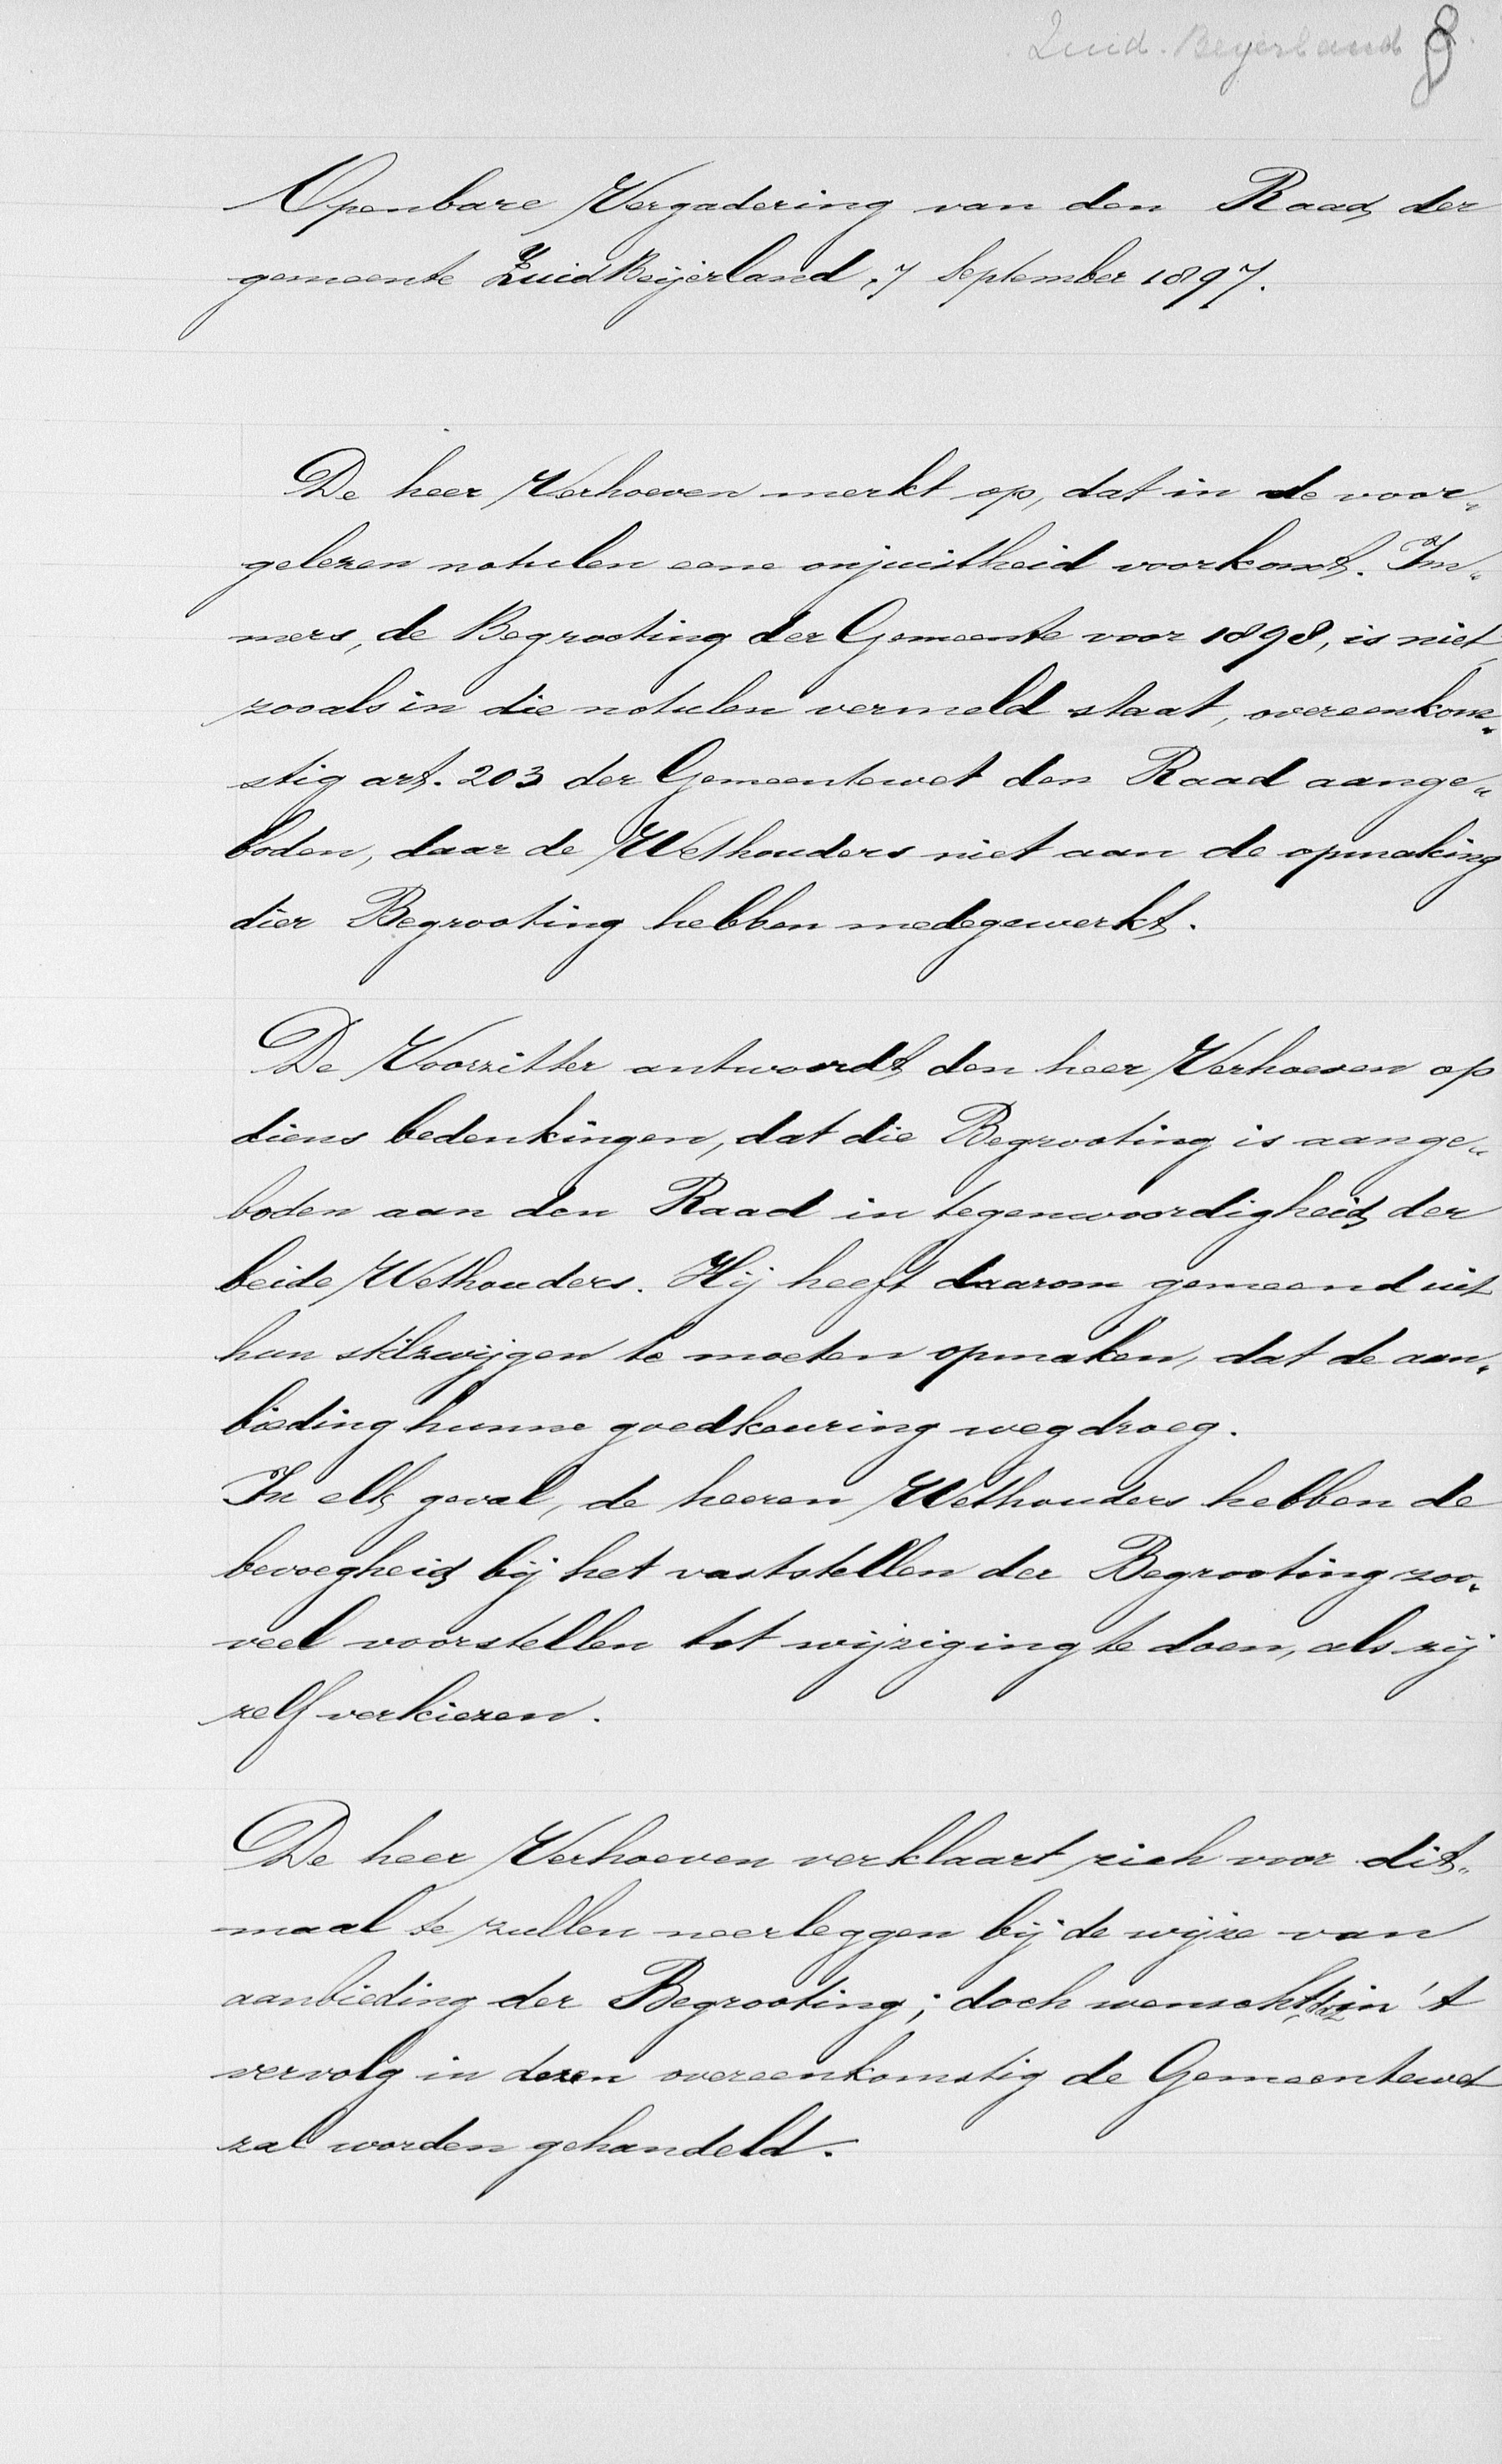 Zuid-Beyerland 8.
Openbare Vergadering van den Raad der
gemeente Zuid Beijerland, 7 September 1897.
De heer Verhoeven merkt op, dat in de voor„
gelezen notulen eene onjuistheid voorkomt. Im„
mers, de Begrooting der Gemeente voor 1898, is niet,
zooals in die notulen vermeld staat, overeenkom„
stig art. 203 der Gemeentewet den Raad aange„
boden, daar de Wethouders niet aan de opmaking
dier Begrooting hebben medegewerkt.
De Voorzitter antwoordt den heer Verhoeven op
diens bedenkingen, dat die Begrooting is aange„
boden aan den Raad in tegenwoordigheid der
beide Wethouders. Hij heeft daarom gemeend uit
hun stilzwijgen te moeten opmaken, dat de aan„
bieding hunne goedkeuring wegdroeg.
In elk geval, de heeren Wethouders hebben de
bevoegheid bij het vaststellen der Begrooting zoo„
veel voorstellen tot wijziging te doen, als zij
zelf verkiezen.
De heer Verhoeven verklaart zich voor dit„
maal te zullen neerleggen bij de wijze van
aanbieding der Begrooting; doch wenscht in 't
vervolg in dezen overeenkomstig de Gemeentewet
zal worden gehandeld.